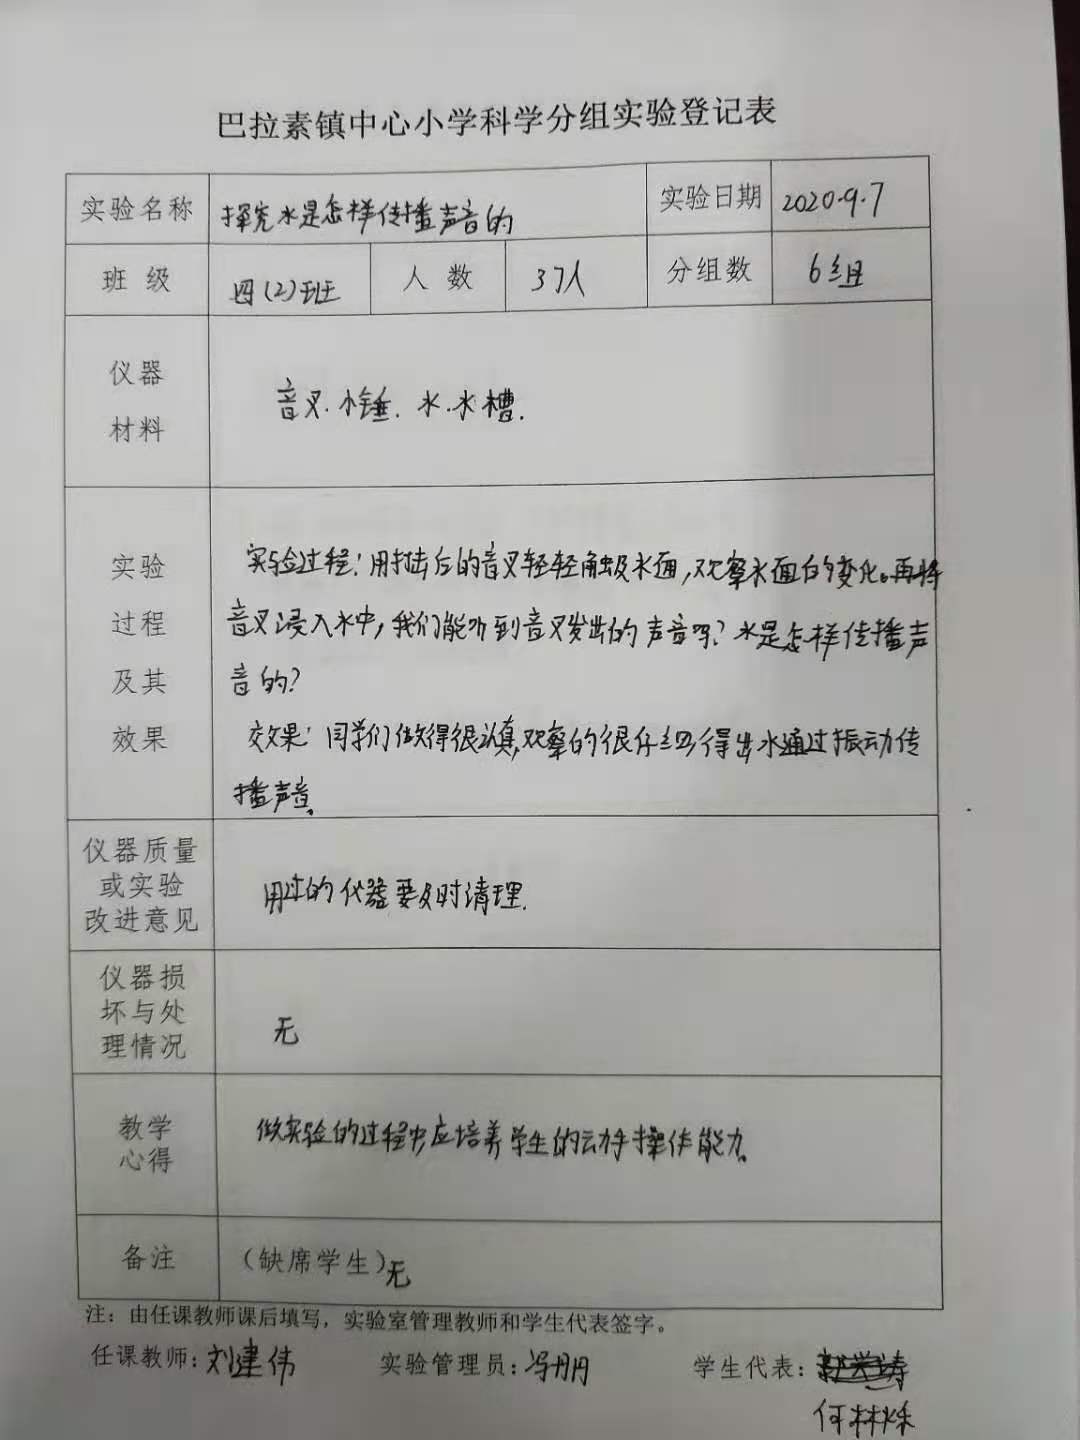 巴拉素镇中心小学科学分组实验登记表
实验名称 探究水是怎样传播声音的 实验日期 2020.9.7
班 级 四(2)班 人 数 37人 分组数 6组
仪器
材料
音叉.小锤.水.水槽.
实验
过程
及其
效果
实验过程:用打击后的音叉轻轻触及水面,观察水面的变化。再将
音叉浸入水中,我们能听到音叉发出的声音吗?水是怎样传播声
音的?
效果:同学们做得很认真,观察的很仔细得出水通过振动传
播声音。
仪器质量
或实验
改进意见
用过的仪器要及时清理.
仪器损
坏与处
理情况
无
教学
心得
做实验的过程中应培养学生的动手操作能力。
备注 (缺席学生)无
注:由任课教师课后填写,实验室管理教师和学生代表签字。
任课教师:刘建伟 实验管理员:冯丹丹 学生代表:
何林烁